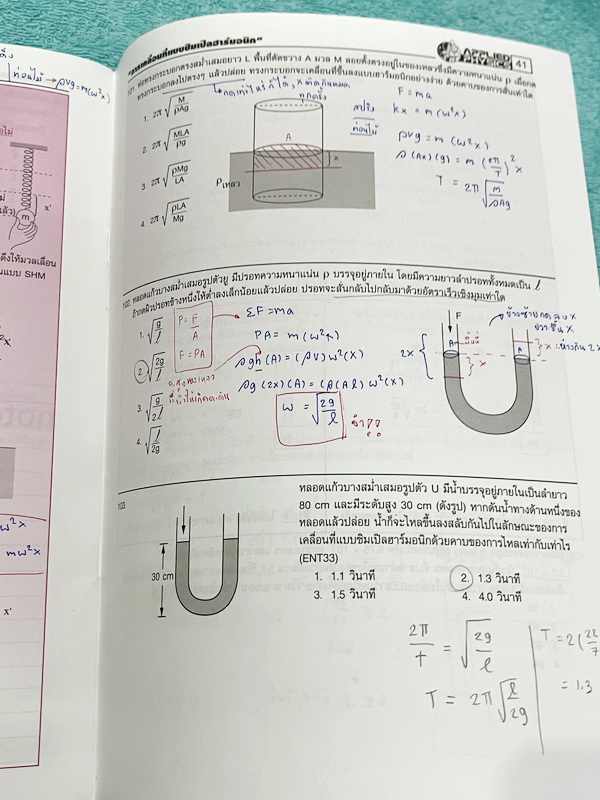 "การเคลื่อนที่แบบซิมเปิลฮาร์มอนิก"
APPLIED PHYSICS 41
101. ท่อทรงกระบอกตรงสม่ำเสมอยาว L พื้นที่ตัดขวาง A มวล M ลอยตั้งตรงอยู่ในของเหลวซึ่งมีความหนาแน่น ρ เมื่อกด
ทรงกระบอกลงไปตรงๆ แล้วปล่อย ทรงกระบอกจะเคลื่อนที่ขึ้นลงแบบฮาร์มอนิกอย่างง่าย ด้วยคาบของการสั่นเท่าใด
1. 2π√(M/ρAg)
2. 2π√(MLA/ρg)
3. 2π√(ρMg/LA)
4. 2π√(ρLA/Mg)
A
x
ρเหลว
สปริง
ท่อนไม้
F = ma
kx = m(ω²x)
ρVg = m(ω²x)
ρ(Ax)(g) = m(2π/T)²x
T = 2π√(m/ρAg)
102. หลอดแก้วบางสม่ำเสมอรูปตัวยู มีปรอทความหนาแน่น ρ บรรจุอยู่ภายใน โดยมีความยาวลำปรอททั้งหมดเป็น l
ถ้ากดผิวปรอทข้างหนึ่งให้ต่ำลงเล็กน้อยแล้วปล่อย ปรอทจะสั่นกลับไปกลับมาด้วยอัตราเร็วเชิงมุมเท่าใด
1. √(g/l)
2. √(2g/l)
3. √(g/2l)
4. √(l/2g)
P = F/A
F = PA
ΣF = ma
PA = m(ω²x)
ρgh(A) = (ρV)ω²(x)
ρg(2x)(A) = (ρ(Al)ω²(x)
ω = √(2g/l)
จำ
F
2x
A
x
A
x
103
30 cm
หลอดแก้วบางสม่ำเสมอรูปตัว U มีน้ำบรรจุอยู่ภายในเป็นลำยาว
80 cm และมีระดับสูง 30 cm (ดังรูป) หากดันน้ำทางด้านหนึ่งของ
หลอดแล้วปล่อย น้ำก็จะไหลขึ้นลงสลับกันไปในลักษณะของการ
เคลื่อนที่แบบซิมเปิลฮาร์โมนิกด้วยคาบของการไหลเท่ากับเท่าไร
(ENT33)
1. 1.1 วินาที
2. 1.3 วินาที
3. 1.5 วินาที
4. 4.0 วินาที
2π/T = √(2g/l)
T = 2π√(l/2g)
T = 2(22/7
= 1.3
ท่อนไม้ → ρVg = m(ω²x)
x'
m
ดึงให้มวลเลื่อน
นแบบ SHM
ω²x
mω²x
x'